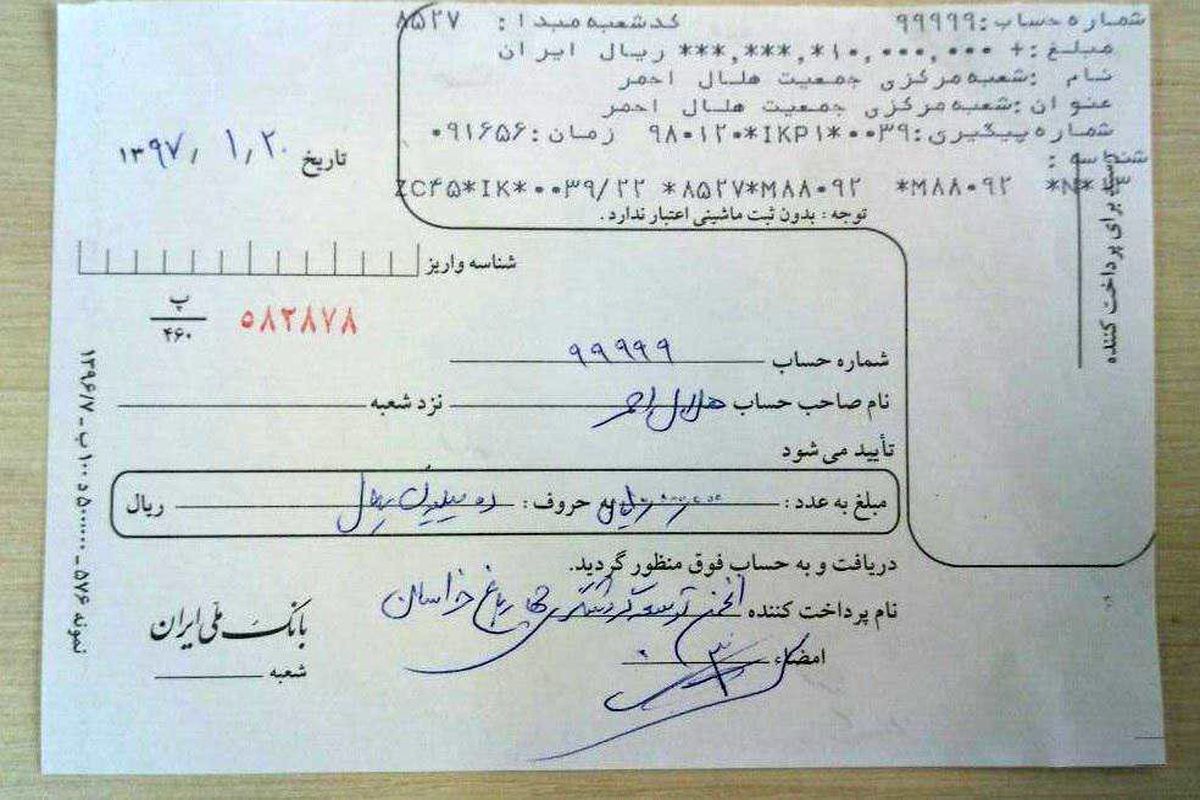 شماره حساب:۹۹۹۹۹ کدشعبه مبدا: ۸۵۲۷
مبلغ:+ ***,***,*۱۰,۰۰۰,۰۰۰ ریال ایران
نام :شعبه مرکزی جمعیت هلال احمر
عنوان:شعبه مرکزی جمعیت هلال احمر
شماره پیگیری:۹۸۰۱۲۰*IKP۱*۰۰۳۹ زمان:۰۹۱۶۵۶
شناسه :
ZC۴۵*IK*۰۰۳۹/۲۲ *۸۵۲۷*M۸۸۰۹۲ *M۸۸۰۹۲ *N*۱۳
توجه : بدون ثبت ماشینی اعتبار ندارد.
تاریخ ۱۳۹۷/۱/۲۰
رسید برای پرداخت کننده
شناسه واریز
پ
۴۶۰
۵۸۲۸۷۸
شماره حساب ۹۹۹۹۹
نام صاحب حساب هلال احمر نزد شعبه
تأیید می شود
مبلغ به عدد : به حروف : ده میلیون ریال ریال
دریافت و به حساب فوق منظور گردید.
نام پرداخت کننده انجمن توسعه گردشگری خراسان
امضاء
بانک ملی ایران
شعبه
نمونه ۵۷۶ ـ ۵۰۰۰۰۰۰ د ۱۰۰ ب ـ ۱۳۹۶/۷